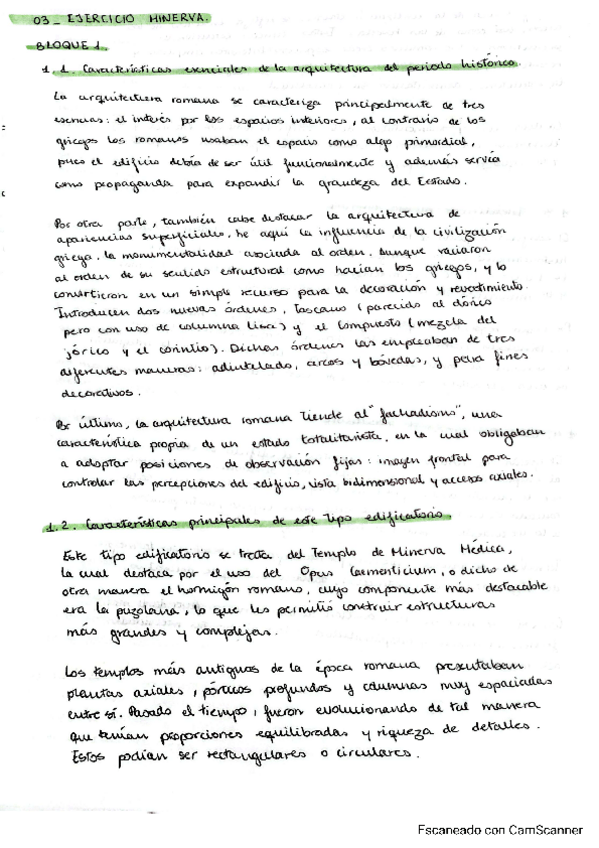 03 - EJERCICIO MINERVA.
BLOQUE 1.
1.1. Características esenciales de la arquitectura del periodo histórico.
La arquitectura romana se caracteriza principalmente de tres
esencias: el interés por los espacios interiores, al contrario de los
griegos los romanos usaban el espacio como algo primordial,
pues el edificio debía de ser útil funcionalmente y además servía
como propaganda para expandir la grandeza del Estado.
Por otra parte, también cabe destacar la arquitectura de
apariencias superficiales, he aquí la influencia de la civilización
griega, la monumentalidad asociada al orden. Aunque vaciaron
al orden de su sentido estructural como hacían los griegos, y lo
convirtieron en un simple recurso para la decoración y revestimiento.
Introducen dos nuevas órdenes, Toscano (parecido al dórico
pero con uso de columna lisa) y el Compuesto (mezcla del
jónico y el corintio). Dichas órdenes las empleaban de tres
diferentes maneras: adintelado, arcos y bóvedas, y para fines
decorativos.
Por último, la arquitectura romana tiende al "fachadismo", una
característica propia de un estado totalitarista, en la cual obligaban
a adoptar posiciones de observación fijas: imagen frontal para
controlar las percepciones del edificio, vista bidimensional y accesos axiales.
1.2. Características principales de este tipo edificatorio.
Este tipo edificatorio se trata del Templo de Minerva Médica,
la cual destaca por el uso del Opus Caementicium, o dicho de
otra manera el hormigón romano, cuyo componente más destacable
era la puzolana, lo que les permitió construir estructuras
más grandes y complejas.
Los templos más antiguos de la época romana presentaban
plantas axiales, pórticos profundos y columnas muy espaciadas
entre sí. Pasado el tiempo, fueron evolucionando de tal manera
que tenían proporciones equilibradas y riqueza de detalles.
Estos podían ser rectangulares o circulares.
Escaneado con CamScanner